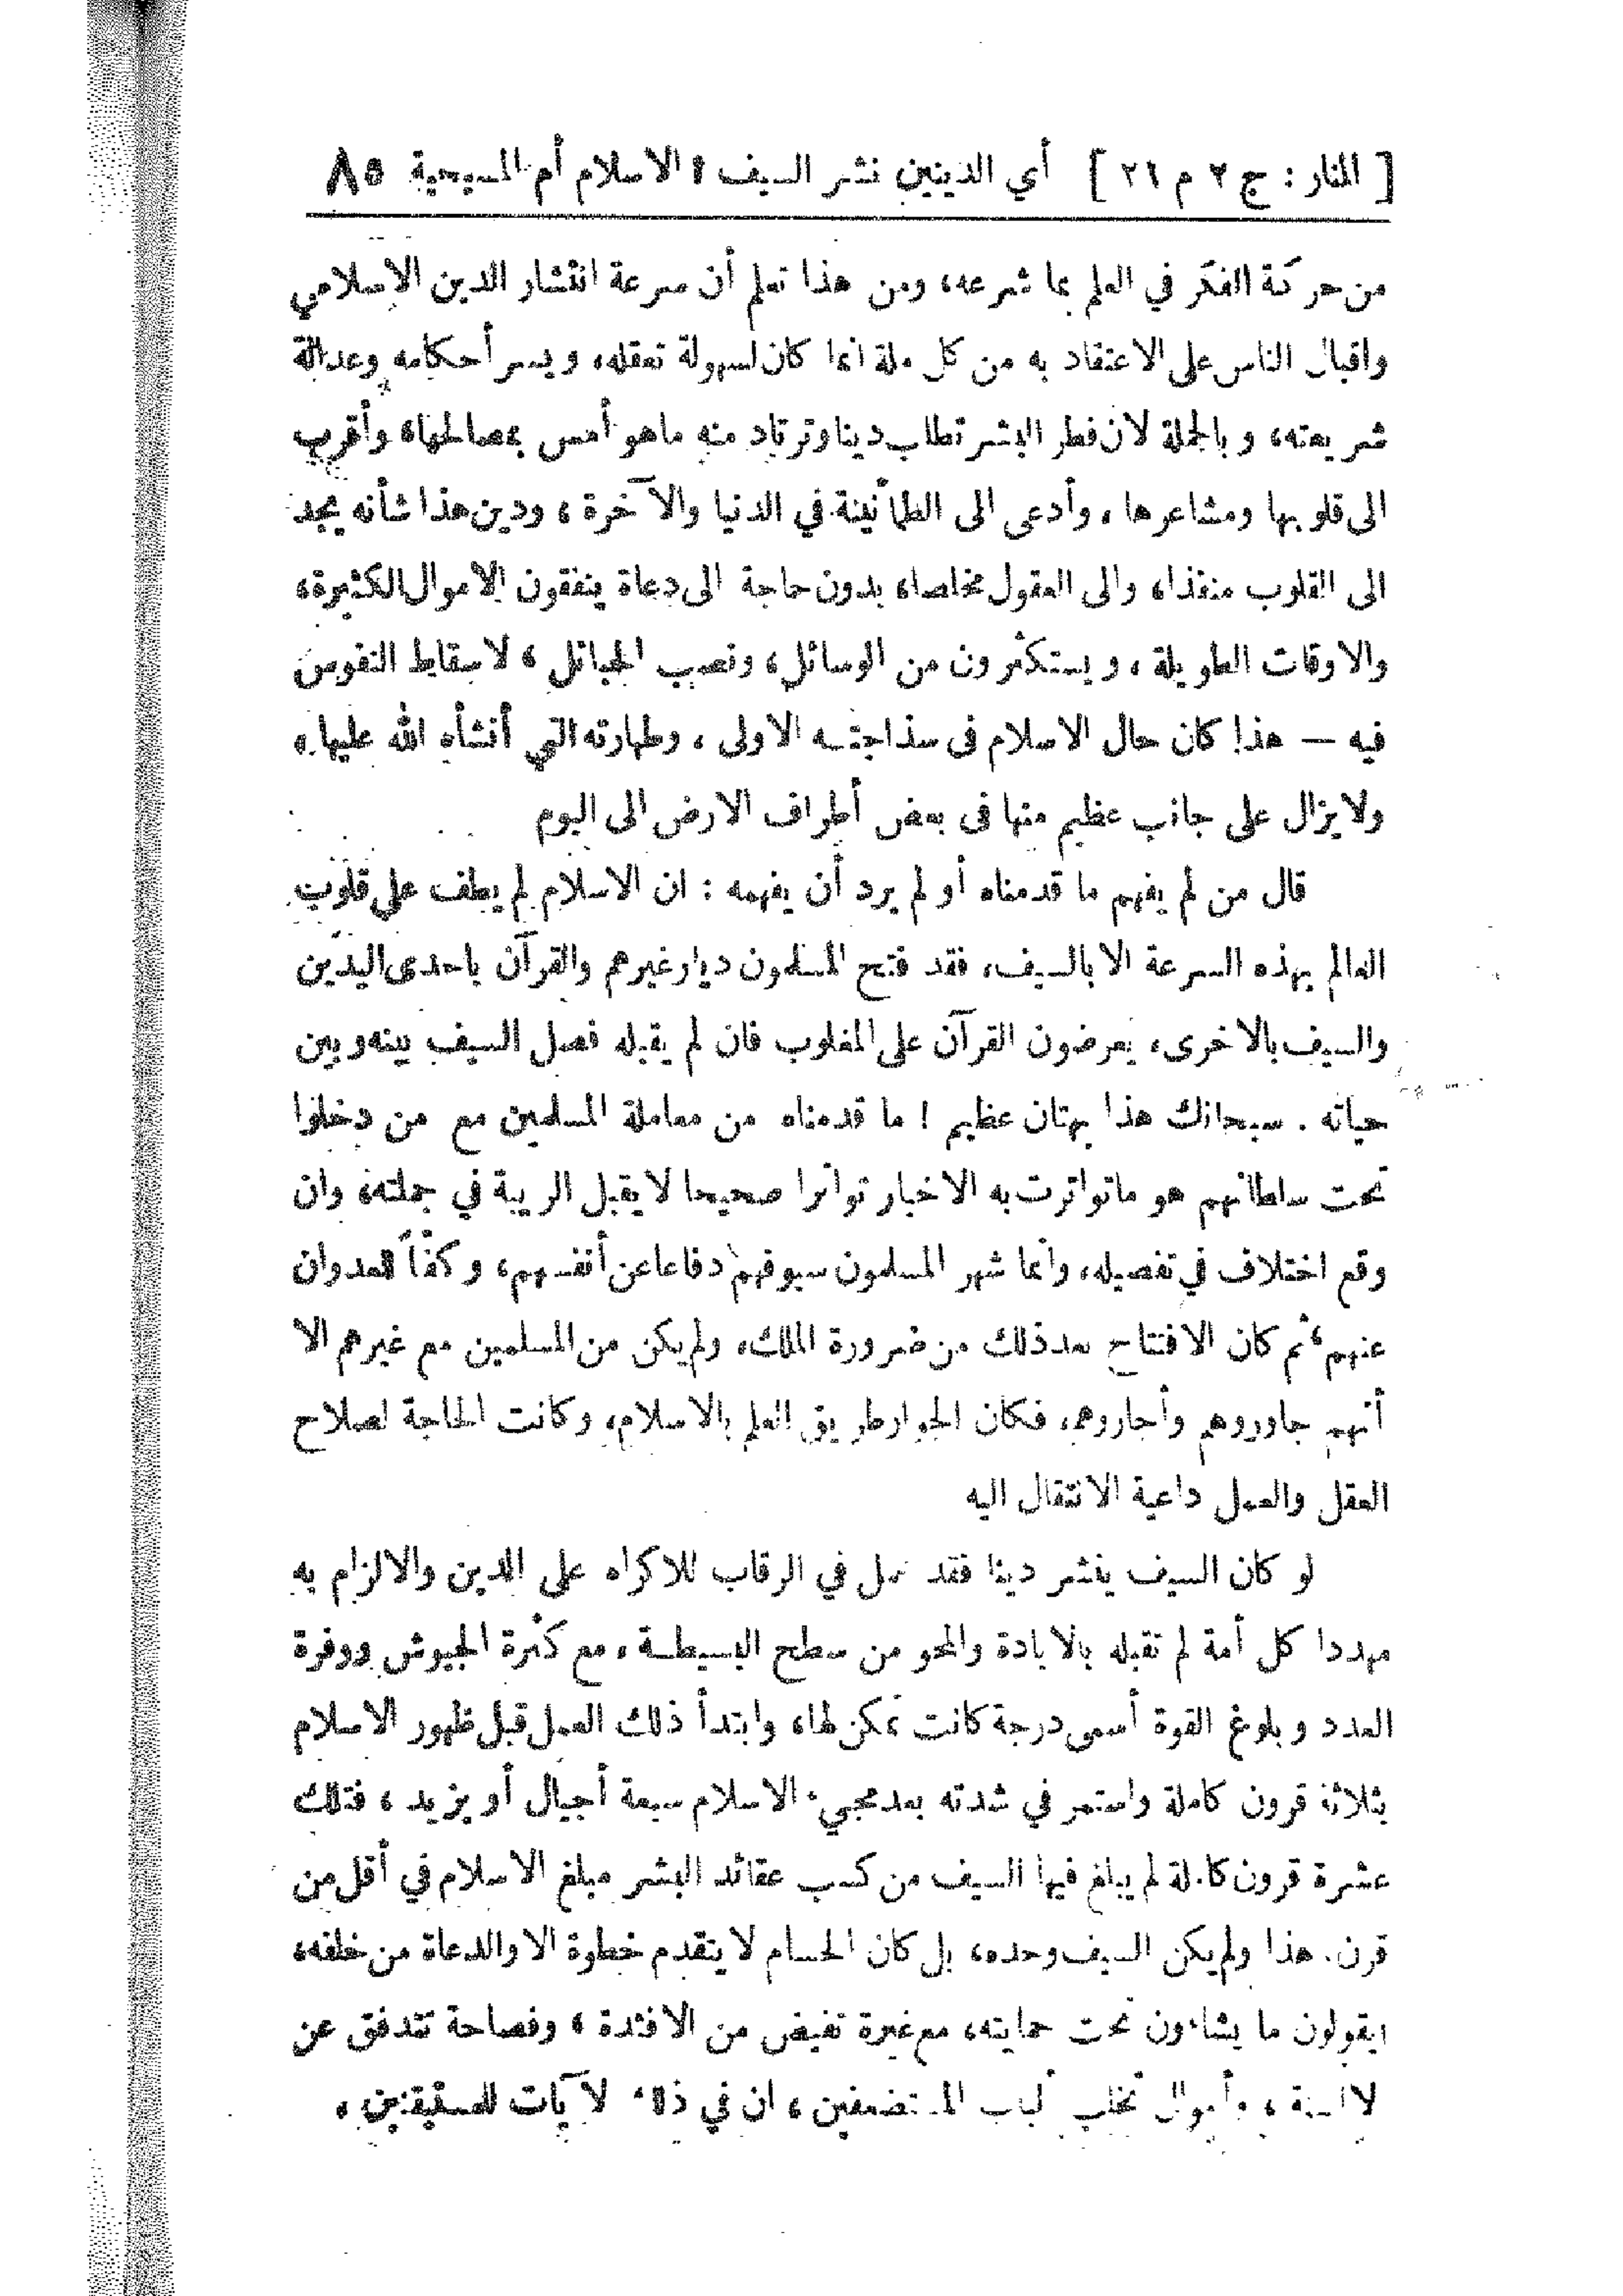 [ المنار : ج ٢ م ٢٦ ] أي الدينين نشر السيف ؛ الاسلام أم المسيحية ٨٥
من حركة الفكر في العلم بما شرعه، ومن هذا تعلم أن سرعة انتشار الدين الاسلامي
واقبال الناس على الاعتقاد به من كل ملة انما كان لسهولة تعقله، ويسر أحكامه وعدالة
شريعته، وبالجملة لان فطر البشر تطلب دينا وترتاد منه ماهو أمس بمصالحها، وأقرب
الى قلوبها ومشاعرها ، وأدعى الى الطمأنينة في الدنيا والآخرة ، ودين هذا شأنه يجد
الى القلوب منفذا، والى العقول مخلصا، بدون حاجة الى دعاة ينفقون الاموال الكثيرة،
والاوقات الطويلة ، ويستكثرون من الوسائل، ونصب الحبائل ، لاسقاط النفوس
فيه — هذا كان حال الاسلام في سذاجته الاولى ، وطهارته التي أنشأه الله عليها ،
ولا يزال على جانب عظيم منها في بعض أطراف الارض الى اليوم
قال من لم يفهم ما قدمناه أو لم يرد أن يفهمه : ان الاسلام لم يطف على قلوب
العالم بهذه السرعة الا بالسيف، فقد فتح المسلمون ديار غيرهم والقرآن باحدى اليدين
والسيف بالاخرى، يعرضون القرآن على المغلوب فان لم يقبله فصل السيف بينه وبين
حياته . سبحانك هذا بهتان عظيم ! ما قدمناه من معاملة المسلمين مع من دخلوا
تحت سلطانهم هو ماتواترت به الاخبار تواترا صحيحا لا يقبل الريبة في جملته، وان
وقع اختلاف في تفصيله، وانما شهر المسلمون سيوفهم دفاعا عن أنفسهم، وكفّاً للعدوان
عنهم، ثم كان الافتتاح بعد ذلك من ضرورة الملك، ولم يكن من المسلمين مع غيرهم الا
أنهم جاوروهم وأجاروهم، فكان الجوار طريق العلم بالاسلام، وكانت الحاجة لصلاح
العقل والعمل داعية الانتقال اليه
لو كان السيف ينشر دينا فقد عمل في الرقاب للاكراه على الدين والالزام به
مهددا كل أمة لم تقبله بالابادة والمحو من سطح البسيطة ، مع كثرة الجيوش ووفرة
العدد وبلوغ القوة أسمى درجة كانت تمكن لها، وابتدأ ذلك العمل قبل ظهور الاسلام
بثلاثة قرون كاملة واستمر في شدته بعد مجيء الاسلام سبعة أجيال أو يزيد ، فتلك
عشرة قرون كاملة لم يبلغ فيها السيف من كسب عقائد البشر مبلغ الاسلام في أقل من
قرن. هذا ولم يكن السيف وحده، بل كان الحسام لا يتقدم خطوة الا والدعاة من خلفه،
يقولون ما يشاءون تحت حمايته، مع غيرة تفيض من الافئدة ، وفصاحة تتدفق عن
الالسنة ، وأموال تخلب ألباب المستضعفين ، ان في ذلك لآيات للمستيقنين .